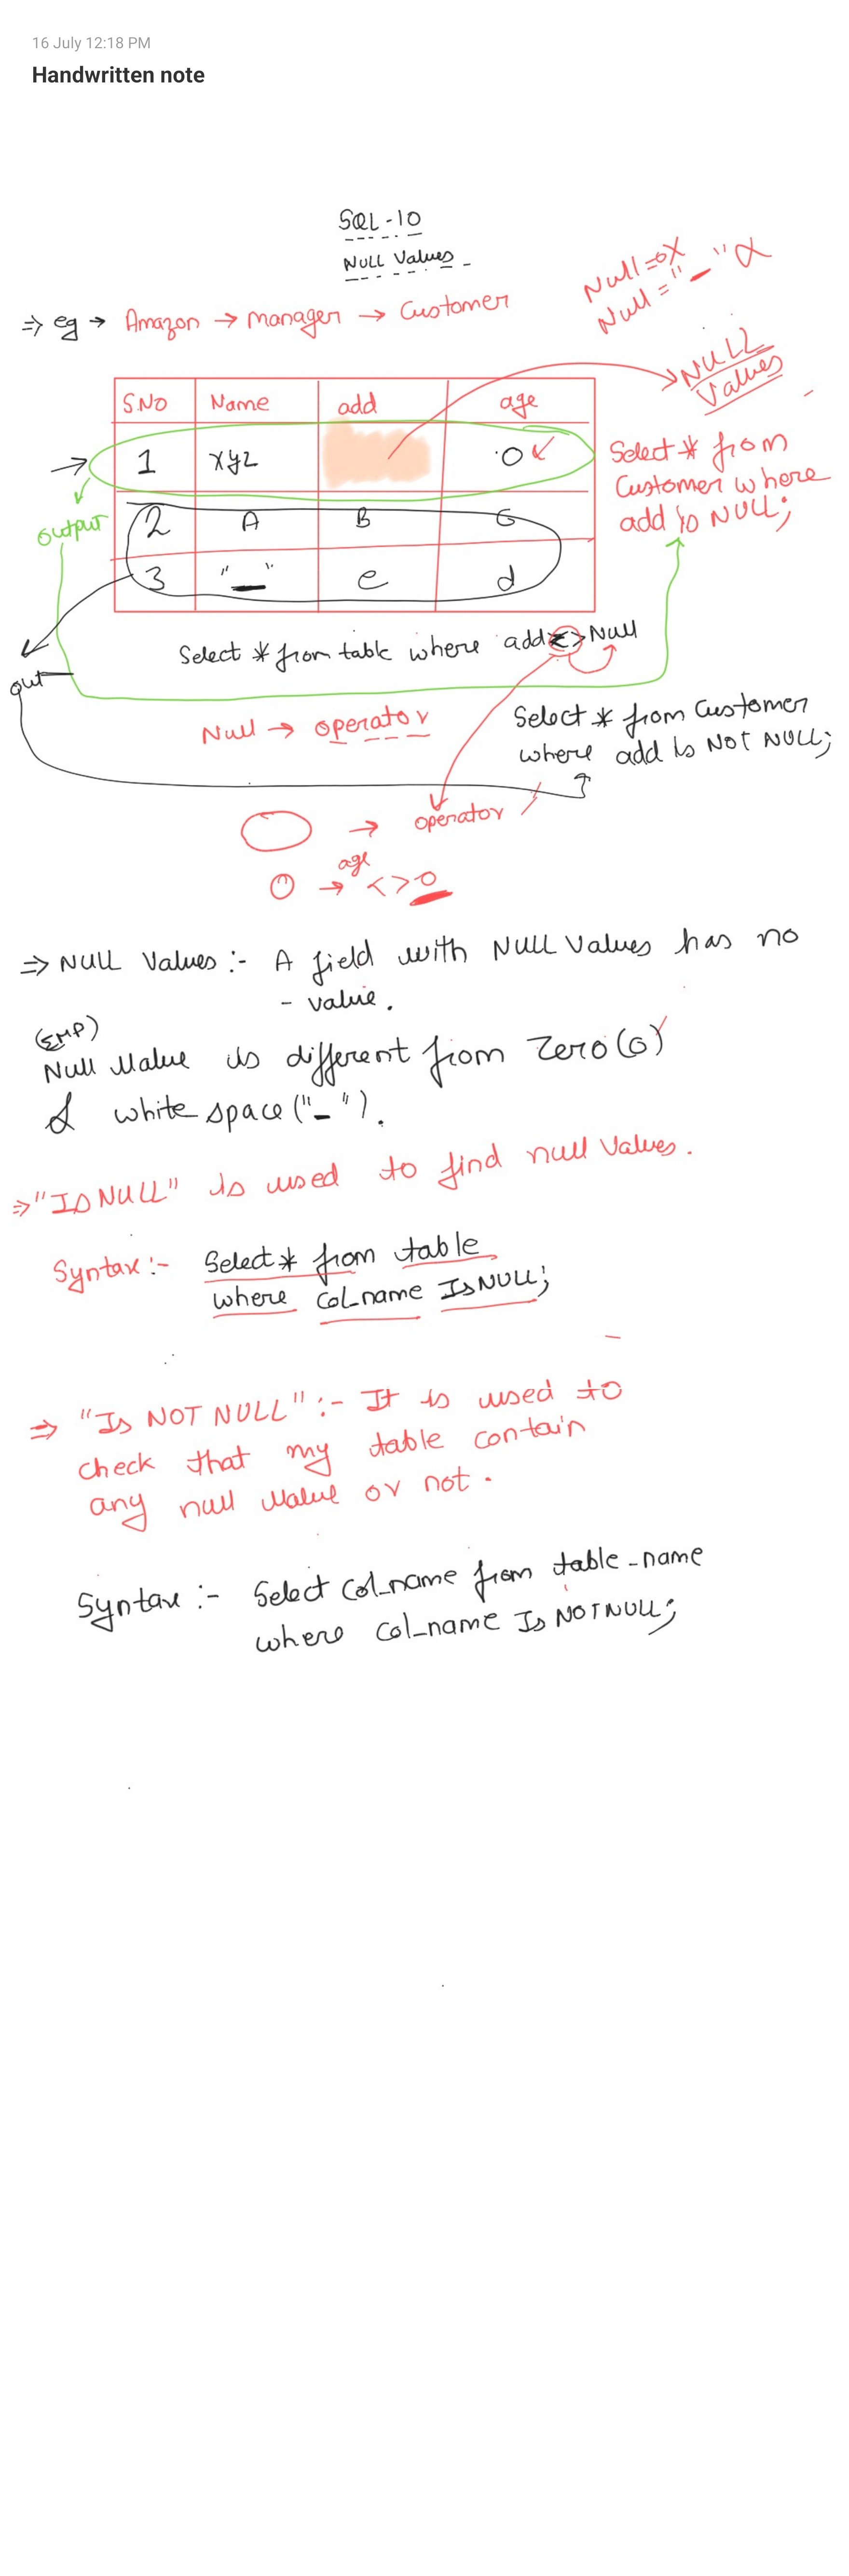 16 July 12:18 PM
Handwritten note
SQL-10
NULL Values
Null=0X
Null = "_" X
=> eg → Amazon → manager → Customer
NULL
Values
S.NO Name add age
1 xyz 0
2 A B G
3 "_" e d
output
Select * from
Customer where
add is NULL;
Select * from table where add <> Null
out
Null → operator
Select * from Customer
where add is NOT NULL;
→ operator
age
0 → <>0
=> NULL Values :- A field with NULL Values has no
- value.
(IMP)
Null Value is different from Zero(0)
& white space ("_").
=> "IS NULL" is used to find null Values.
Syntax :- Select * from table
where Col_name Is NULL;
=> "Is NOT NULL" :- It is used to
check that my table contain
any null Value or not.
Syntax :- Select Col_name from table_name
where Col_name Is NOT NULL;